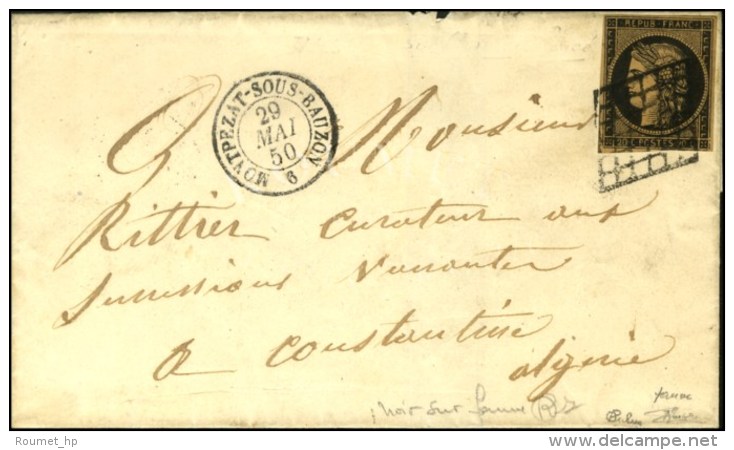 REPUB. FRANC.
20 C. POSTES 20 C.
MONTPEZAT-SOUS-BAUZON
29
MAI
50
6
A Monsieur
Rittier curateur aux
Successions vacantes
a constantine
algerie
Noir sur jaune
jaune
Roumet_hp
delcampe.net